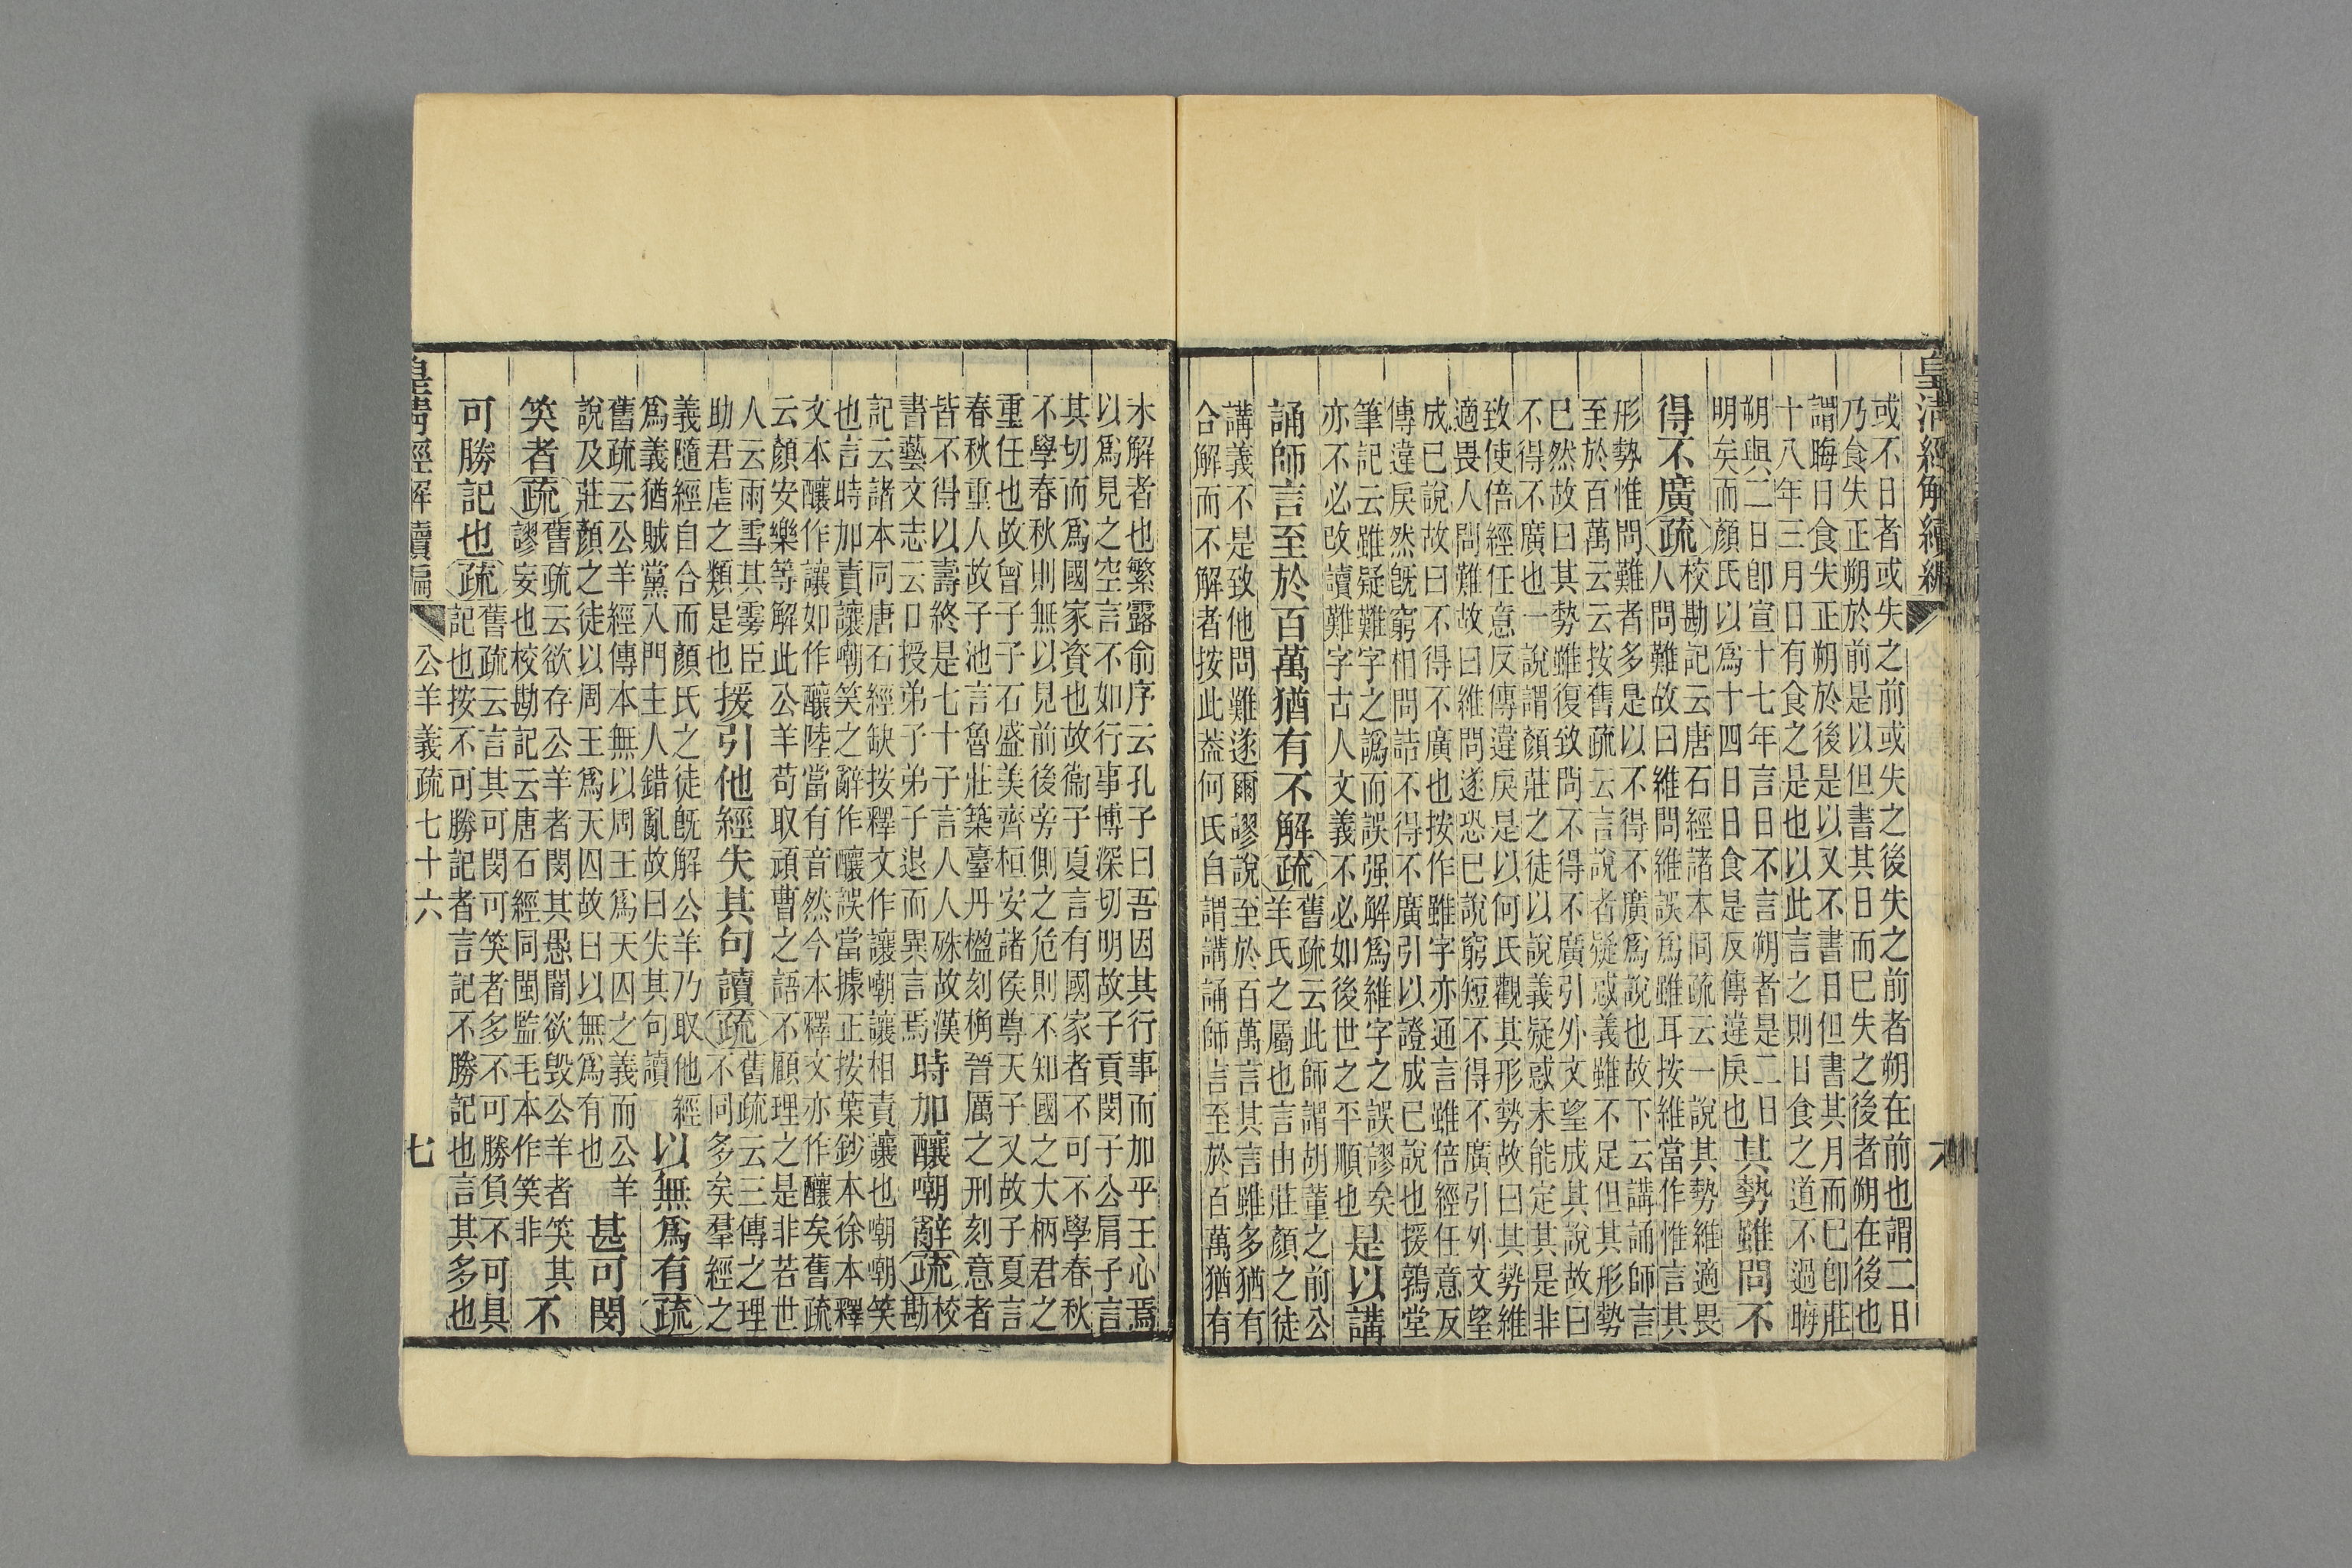 皇清經解續編
或不日者或失之前或失之後失之前者朔在前也謂二日
乃食失正朔於前是以但書其日而已失之後者朔在後也
謂晦日食失正朔於後是以又不書日但書其月而已卽莊
十八年三月日有食之是也以此言之則日食之道不過晦
朔與二日卽宣十七年言日不言朔者是二日
明矣而顏氏以爲十四日日食是反傳違戾也
其勢雖問不
得不廣疏
校勘記云唐石經諸本同疏云一說其勢維適畏
人問難故曰維問維誤爲雖耳按維當作惟言其
形勢惟問難者多是以不得不廣爲說也故下云講誦師言
至於百萬云云按舊疏云言說者疑惑義雖不足但其形勢
已然故曰其勢雖復致問不得不廣引外文望成其說故曰
不得不廣也一說謂顏莊之徒以說義疑惑未能定其是非
致使倍經任意反傳違戾是以何氏觀其形勢故曰其勢維
適畏人問難故曰維問遂恐已說窮短不得不廣引外文望
成已說故曰不得不廣也按作雖字亦通言雖倍經任意反
傳違戾然旣窮相問詰不得不廣引以證成已說也援鶉堂
筆記云雖疑難字之譌而誤强解爲維字之誤謬矣
亦不必改讀難字古人文義不必如後世之平順也
是以講
誦師言至於百萬猶有不解疏
舊疏云此師謂胡董之前公
羊氏之屬也言由莊顏之徒
講義不是致他問難遂爾謬說至於百萬言其言雖多猶有
合解而不解者按此葢何氏自謂講誦師言至於百萬猶有
六
未解者也繁露俞序云孔子曰吾因其行事而加乎王心焉
以爲見之空言不如行事博深切明故子貢閔子公肩子言
其切而爲國家資也故衞子夏言有國家者不可不學春秋
不學春秋則無以見前後旁側之危則不知國之大柄君之
重任也故曾子子石盛美齊桓安諸侯尊天子又故子夏言
春秋重人故子池言魯莊築臺丹楹刻桷晉厲之刑刻意者
皆不得以壽終是七十子言人人殊故漢
書藝文志云口授弟子弟子退而異言焉
時加釀嘲辭疏
校
勘
記云諸本同唐石經缺按釋文作讓嘲讓相責讓也嘲嘲笑
也言時加責讓嘲笑之辭作釀誤當據正按葉鈔本徐本釋
文本釀作讓如作釀陸當有音然今本釋文亦作釀矣舊疏
云顏安樂等解此公羊苟取頑曹之語不顧理之是非若世
人云雨雪其雱臣
助君虐之類是也
援引他經失其句讀疏
舊疏云三傳之理
不同多矣羣經之
義隨經自合而顏氏之徒旣解公羊乃取他經
爲義猶賊黨入門主人錯亂故曰失其句讀
以無爲有疏
舊疏云公羊經傳本無以周王爲天囚之義而公羊
說及莊顏之徒以周王爲天囚故曰以無爲有也
甚可閔
笑者疏
舊疏云欲存公羊者閔其愚闇欲毀公羊者笑其
謬妄也校勘記云唐石經同閩監毛本作笑非
不
可勝記也疏
舊疏云言其可閔可笑者多不可勝負不可具
記也按不可勝記者言記不勝記也言其多也
皇淸經解續編
公羊義疏七十六
七